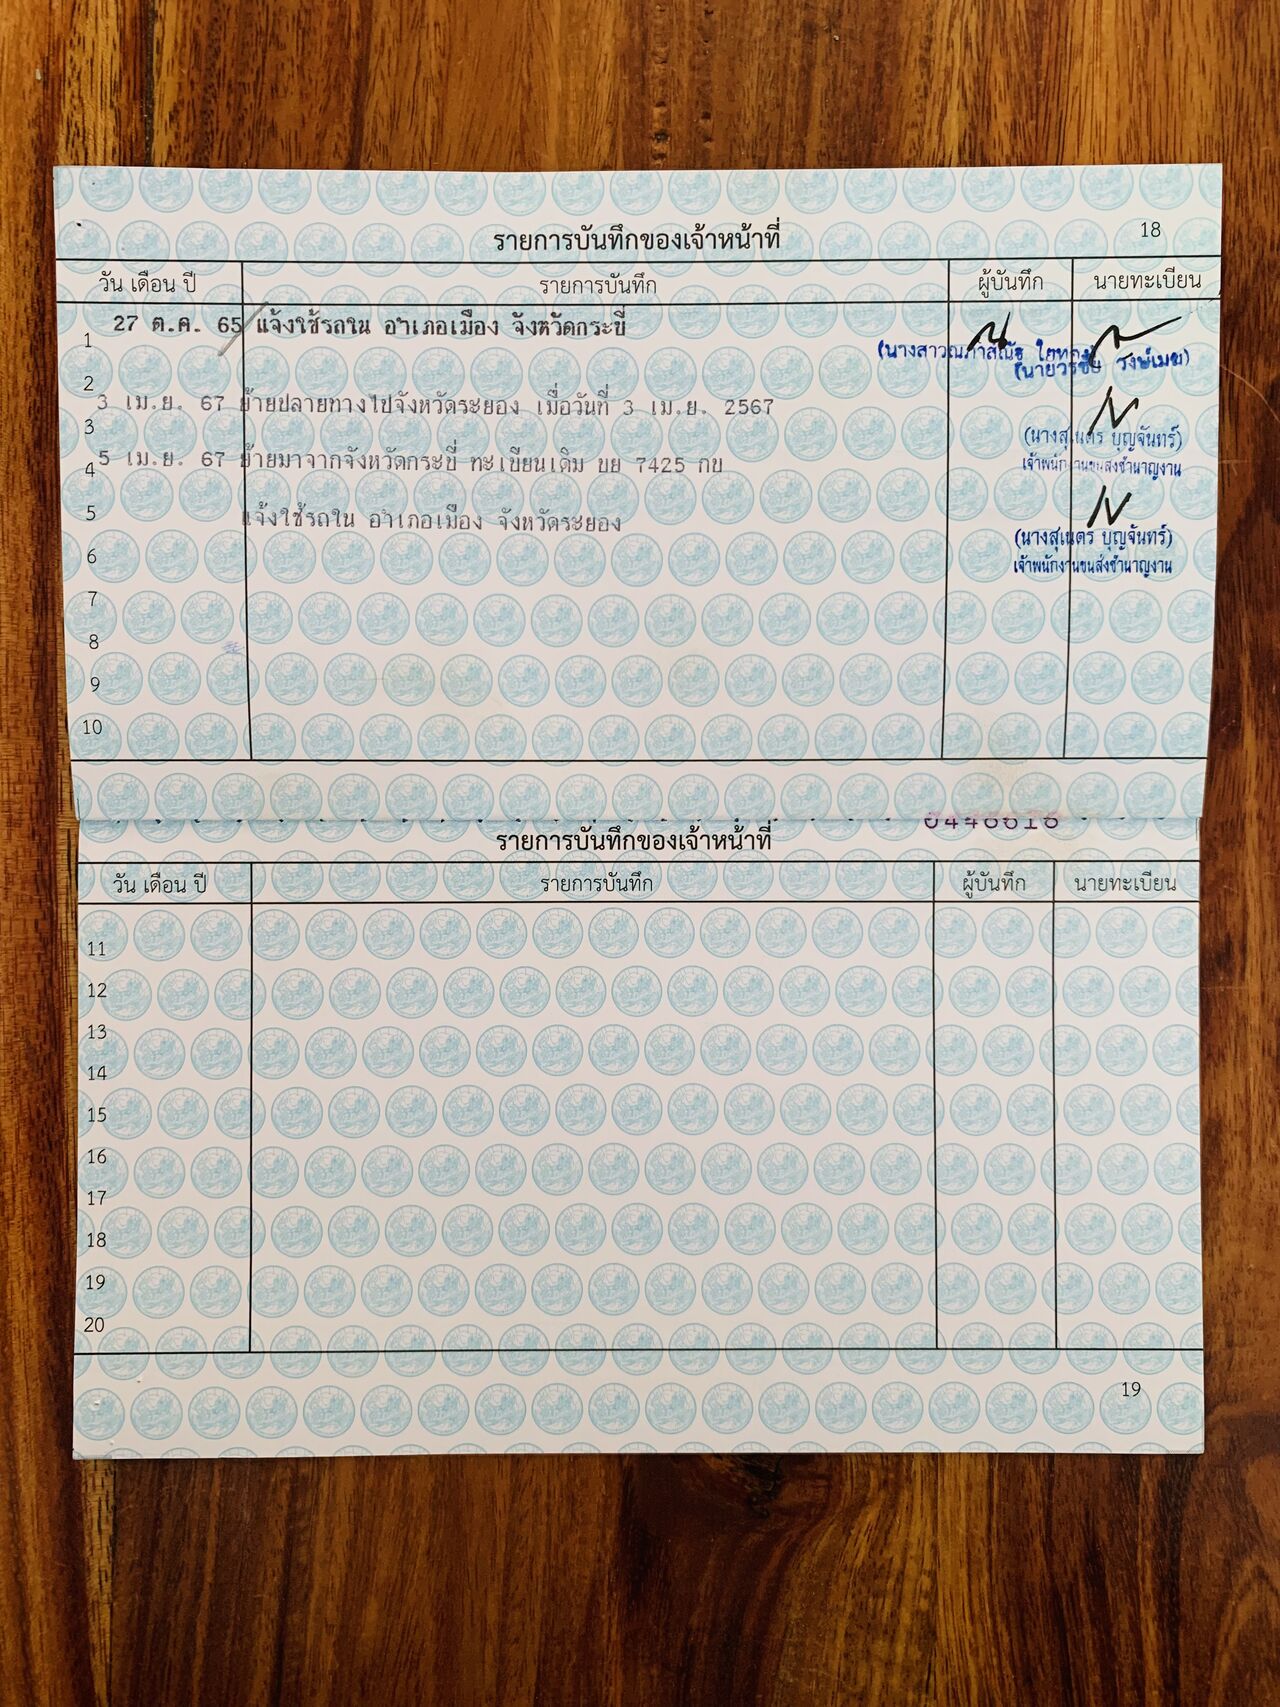 18
รายการบันทึกของเจ้าหน้าที่
วัน เดือน ปี รายการบันทึก ผู้บันทึก นายทะเบียน
1 27 ต.ค. 65 แจ้งใช้รถใน อำเภอเมือง จังหวัดกระบี่
(นางสาวณภาสณัฐ
(นายวรชัย
2
3 เม.ย. 67 ย้ายปลายทางไปจังหวัดระยอง เมื่อวันที่ 3 เม.ย. 2567
3
(นางสุเนตร บุญจันทร์)
เจ้าพนักงานขนส่งชำนาญงาน
4 5 เม.ย. 67 ย้ายมาจากจังหวัดกระบี่ ทะเบียนเดิม ขย 7425 กบ
5 แจ้งใช้รถใน อำเภอเมือง จังหวัดระยอง
(นางสุเนตร บุญจันทร์)
เจ้าพนักงานขนส่งชำนาญงาน
6
7
8
9
10
0446616
รายการบันทึกของเจ้าหน้าที่
วัน เดือน ปี รายการบันทึก ผู้บันทึก นายทะเบียน
11
12
13
14
15
16
17
18
19
20
19